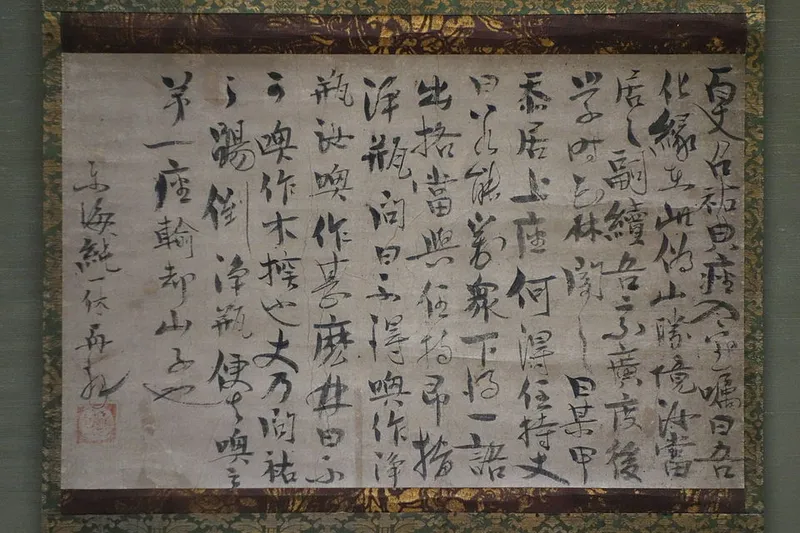 百丈召祐典座入室囑曰吾
化緣在此溈山勝境汝當
居之嗣續吾宗廣度後
學時華林聞之曰某甲
忝居上座何得住持丈
曰若能對衆下得一語
出格當與住持即指
淨瓶問曰不得喚作淨
瓶汝喚作甚麼林曰不
可喚作木𣔻也丈乃問祐
〻踢倒淨瓶便去咲云
第一座輸却山子也
東海純一休